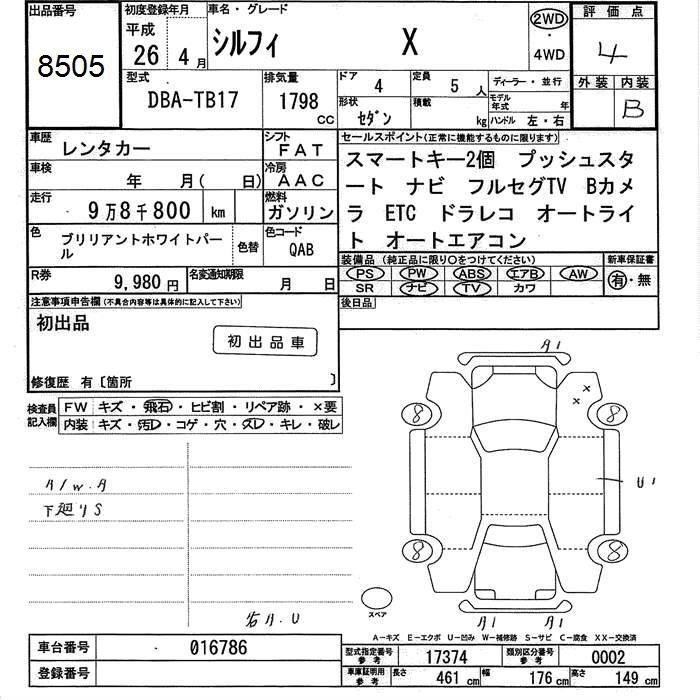 出品番号
8505
初度登録年月
平成
26 4月
車名・グレード
シルフィ X
2WD
・
4WD
評価点
4
外装 内装
B
型式
DBA-TB17
排気量
1798
CC
ドア 4
定員 5 人
ディーラー・並行
形状 セダン
積載 kg
モデル年式 年
ハンドル 左・右
車歴 レンタカー
シフト FAT
車検 年 月( 日)
冷房 AAC
走行 9万8千800 km
燃料 ガソリン
色 ブリリアントホワイトパール
色替
色コード QAB
R券 9,980円
名変通知期限 月 日
セールスポイント(正常に機能するものに限ります)
スマートキー2個 プッシュスタ
ート ナビ フルセグTV Bカメ
ラ ETC ドラレコ オートライ
ト オートエアコン
装備品(純正品に限り○をつけてください)
PS PW ABS エアB AW
SR ナビ TV カワ
新車保証書
有・無
後日品
注意事項申告欄(不具合内容等は具体的に記入して下さい)
初出品
初出品車
修復歴 有〔箇所 〕
検査員記入欄
FW キズ・飛石・ヒビ割・リペア跡・×要
内装 キズ・汚レ・コゲ・穴・スレ・キレ・破レ
A/W.A
下廻りS
A1
8
8
U1
8
8
スペア
A1 A1
A-キズ E-エクボ U-凹み W-補修跡 S-サビ C-腐食 XX-交換済
車台番号 016786
登録番号
型式指定番号 参考 17374
類別区分番号 参考 0002
車庫証明用 参考 長さ 461 cm 幅 176 cm 高さ 149 cm